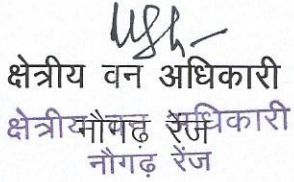 क्षेत्रीय वन अधिकारी
नौगढ़ रेंज
क्षेत्रीय वन अधिकारी
नौगढ़ रेंज